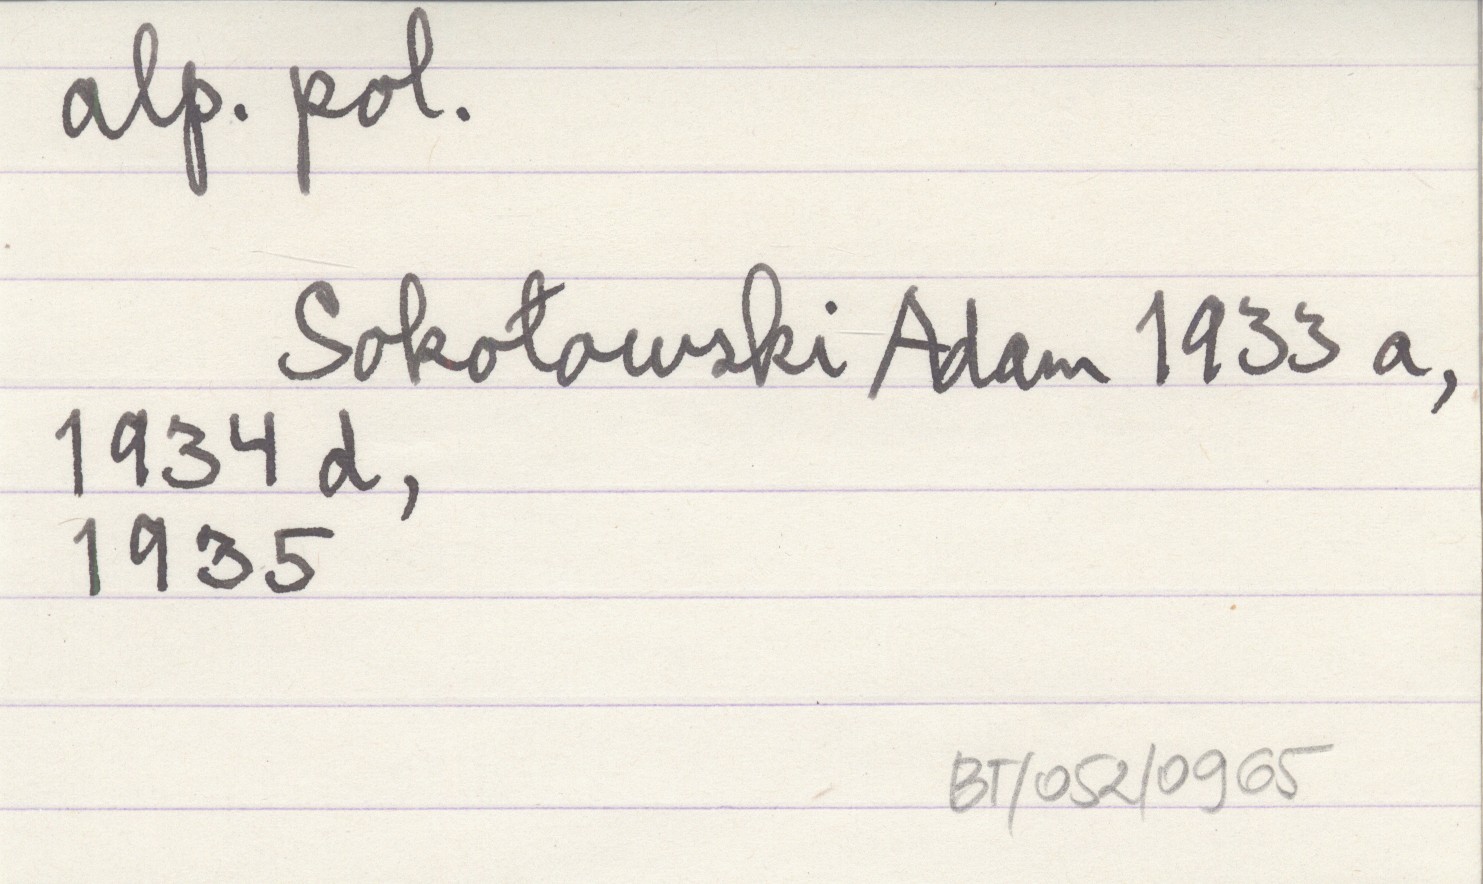 alp. pol.
Sokołowski Adam 1933 a,
1934 d,
1935
BT/052/0965